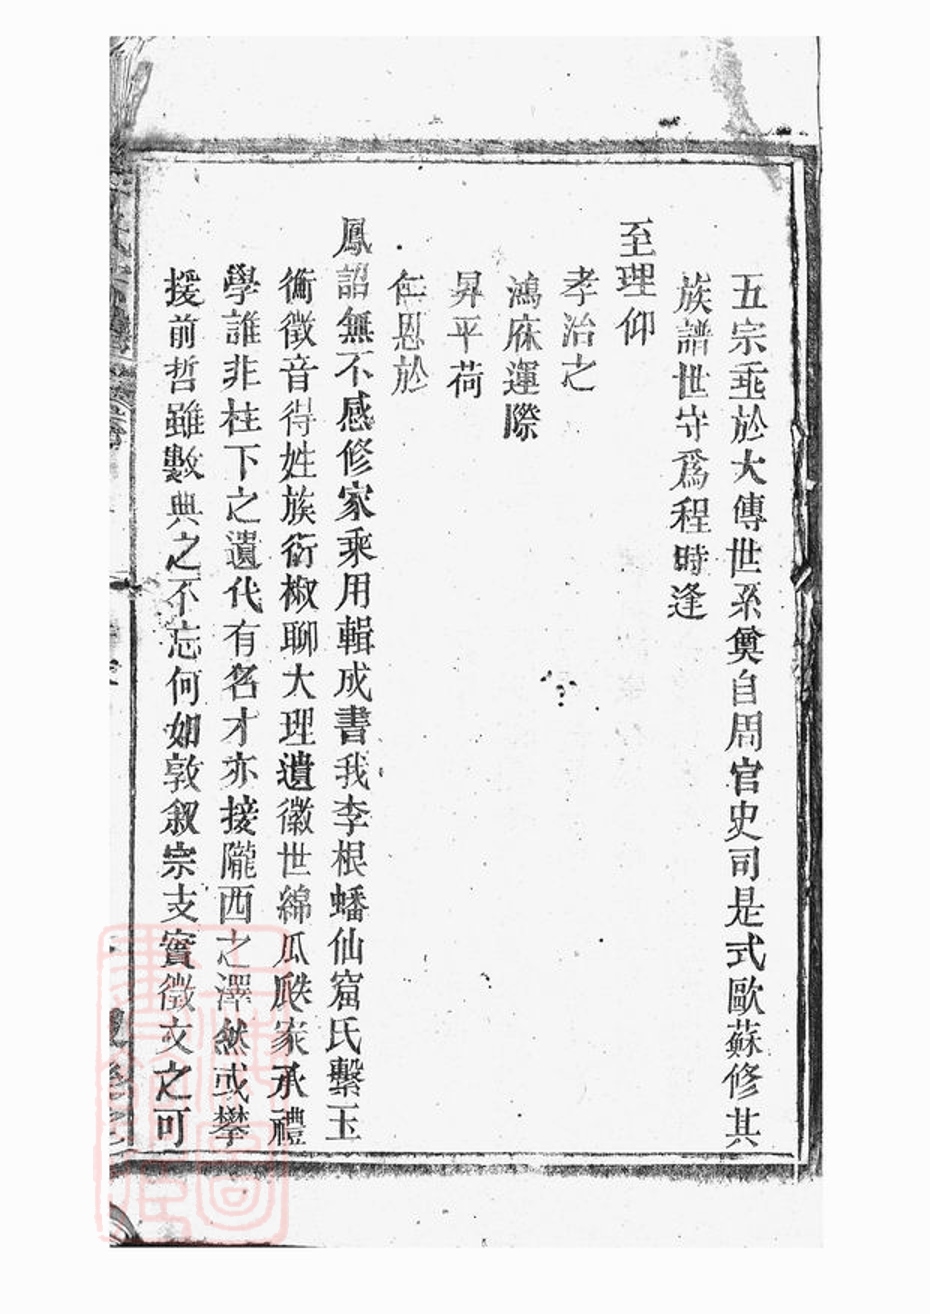 五宗垂於大傳世系奠自周官史司是式歐蘇修其
族譜世守爲程時逢
至理仰
孝治之
鴻庥運際
昇平荷
仁恩於
鳳詔無不感修家乘用輯成書我李根蟠仙窟氏繫玉
衡徵音得姓族衍椒聊大理遺徽世綿瓜瓞家承禮
學誰非柱下之遺代有名才亦接隴西之澤然或攀
援前哲雖數典之不忘何如敦叙宗支實徵文之可